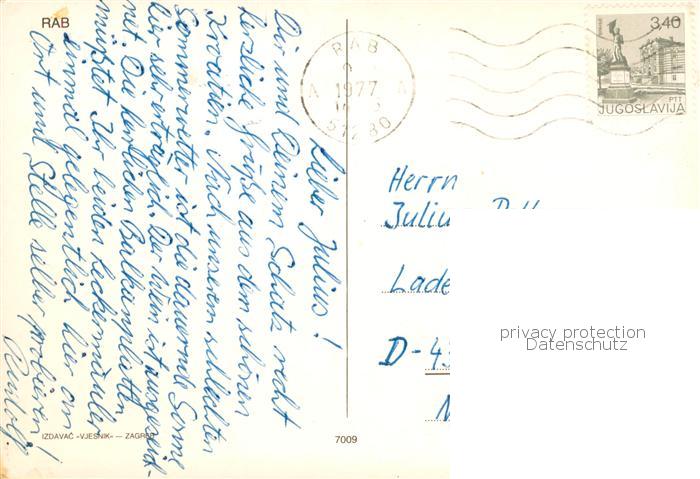 RAB
Lieber Julius!
Dir und Deinem Schatz recht
herzliche Grüße aus dem schönen
Kroatien. Nach unserem schlechten
Sommerwetter ist die dauernde Sonne
hier sehr erträglich. Der Wein ist ausgezeich-
net. Die herrlichen Balkanplatten
müßtet Ihr beiden Leckermäuler
einmal gelegentlich hier an
Ort und Stelle selber probieren!
Rudolf
IZDAVAČ «VJESNIK» — ZAGREB
7009
RAB
1977
A A
51280
3,40
PTT
JUGOSLAVIJA
Herrn
Juliu
Lade
D-43
privacy protection
Datenschutz